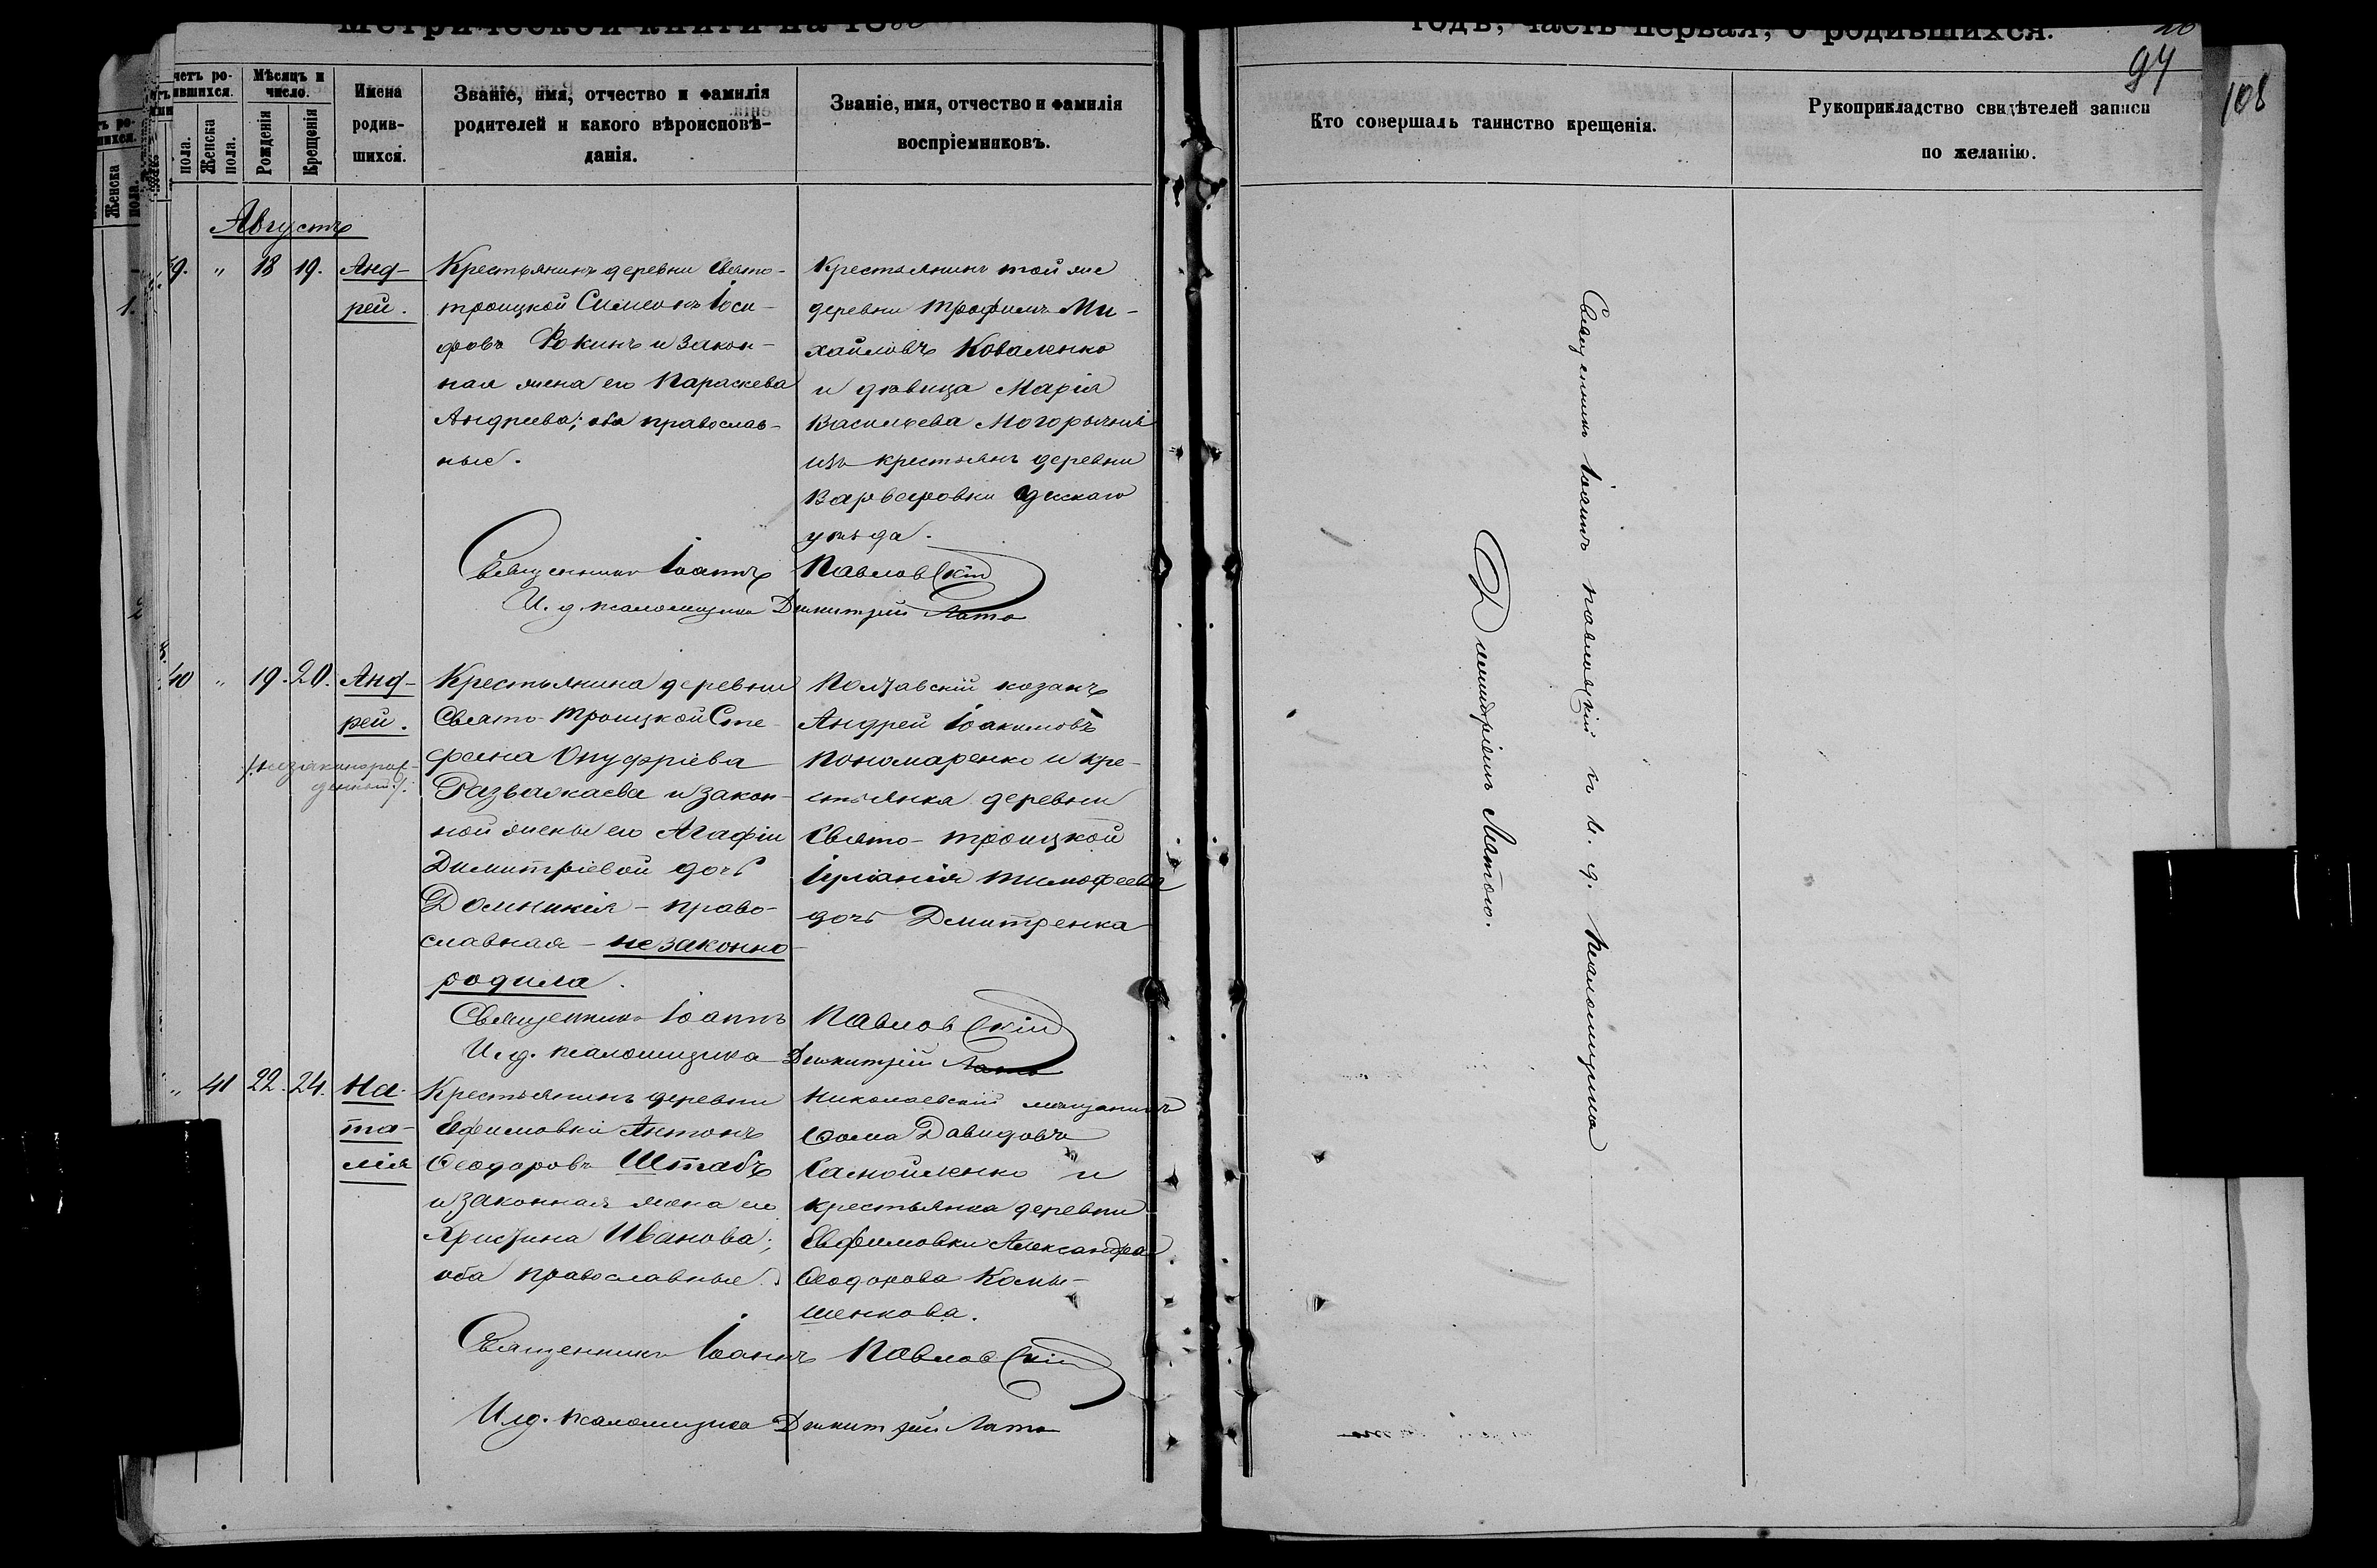 Метрической книги на 188
годъ, часть первая, о родившихся.
94
108
четъ ро-
ившихся.
Мѣсяцъ и
число.
пола.
Женска
пола.
Рожденія
Крещенія
Имена
родив-
шихся.
Званіе, имя, отчество и фамилія
родителей и какого вѣроисповѣ-
данія.
Званіе, имя, отчество и фамилія
воспріемниковъ.
Кто совершалъ таинство крещенія.
Рукоприкладство свидѣтелей записи
по желанію.
Августъ
39. " 18 19. Анд-
рей.
Крестьянинъ деревни Свято-
троицкой Симеонъ Іоси-
фовъ Фокинъ и закон-
ная жена его Параскева
Андреева; оба православ-
ные.
Крестьянинъ той же
деревни Трофимъ Ми-
хайловъ Коваленко
и дѣвица Марія
Васильева
изъ крестьянъ деревни
Варваровки Одесскаго
уѣзда.
Священникъ Іоаннъ Павловскій
И. д. псаломщика Димитрій Лато
40 " 19. 20. Анд-
рей.
/:незаконорож-
денный:/.
Крестьянина деревни
Свято-Троицкой Сте-
фана Онуфріева
и закон-
ной жены его Агафіи
Димитріевой дочь
Домникія - право-
славная - незаконно
родила.
Полтавскій козакъ
Андрей Іоакимовъ
Пономаренко и кре-
стьянка деревни
Свято-Троицкой
Іуліанія Тимофеева
дочь Дмитренка
Священникъ Іоаннъ Павловскій
И. д. псаломщика Димитрій Лато
" 41 22. 24. На-
та-
лія
Крестьянинъ деревни
Ефимовки Антонъ
Ѳеодоровъ Штабъ
и законная жена его
Христина Иванова;
оба православные.
Николаевскій мѣщанинъ
Ѳома Давидовъ
Самойленко и
крестьянка деревни
Евфимовки Александра
Ѳеодорова Камы-
шенкова.
Священникъ Іоаннъ Павловскій
И. д. псаломщика Димитрій Лато
Священникъ Іоаннъ Павловскій съ и. д. псаломщика
Димитріемъ Латою.